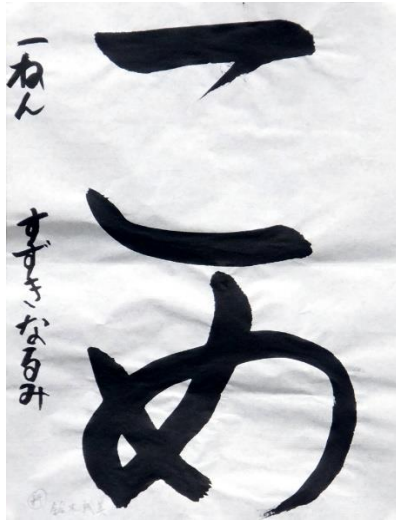 こめ
一ねん すずきなるみ